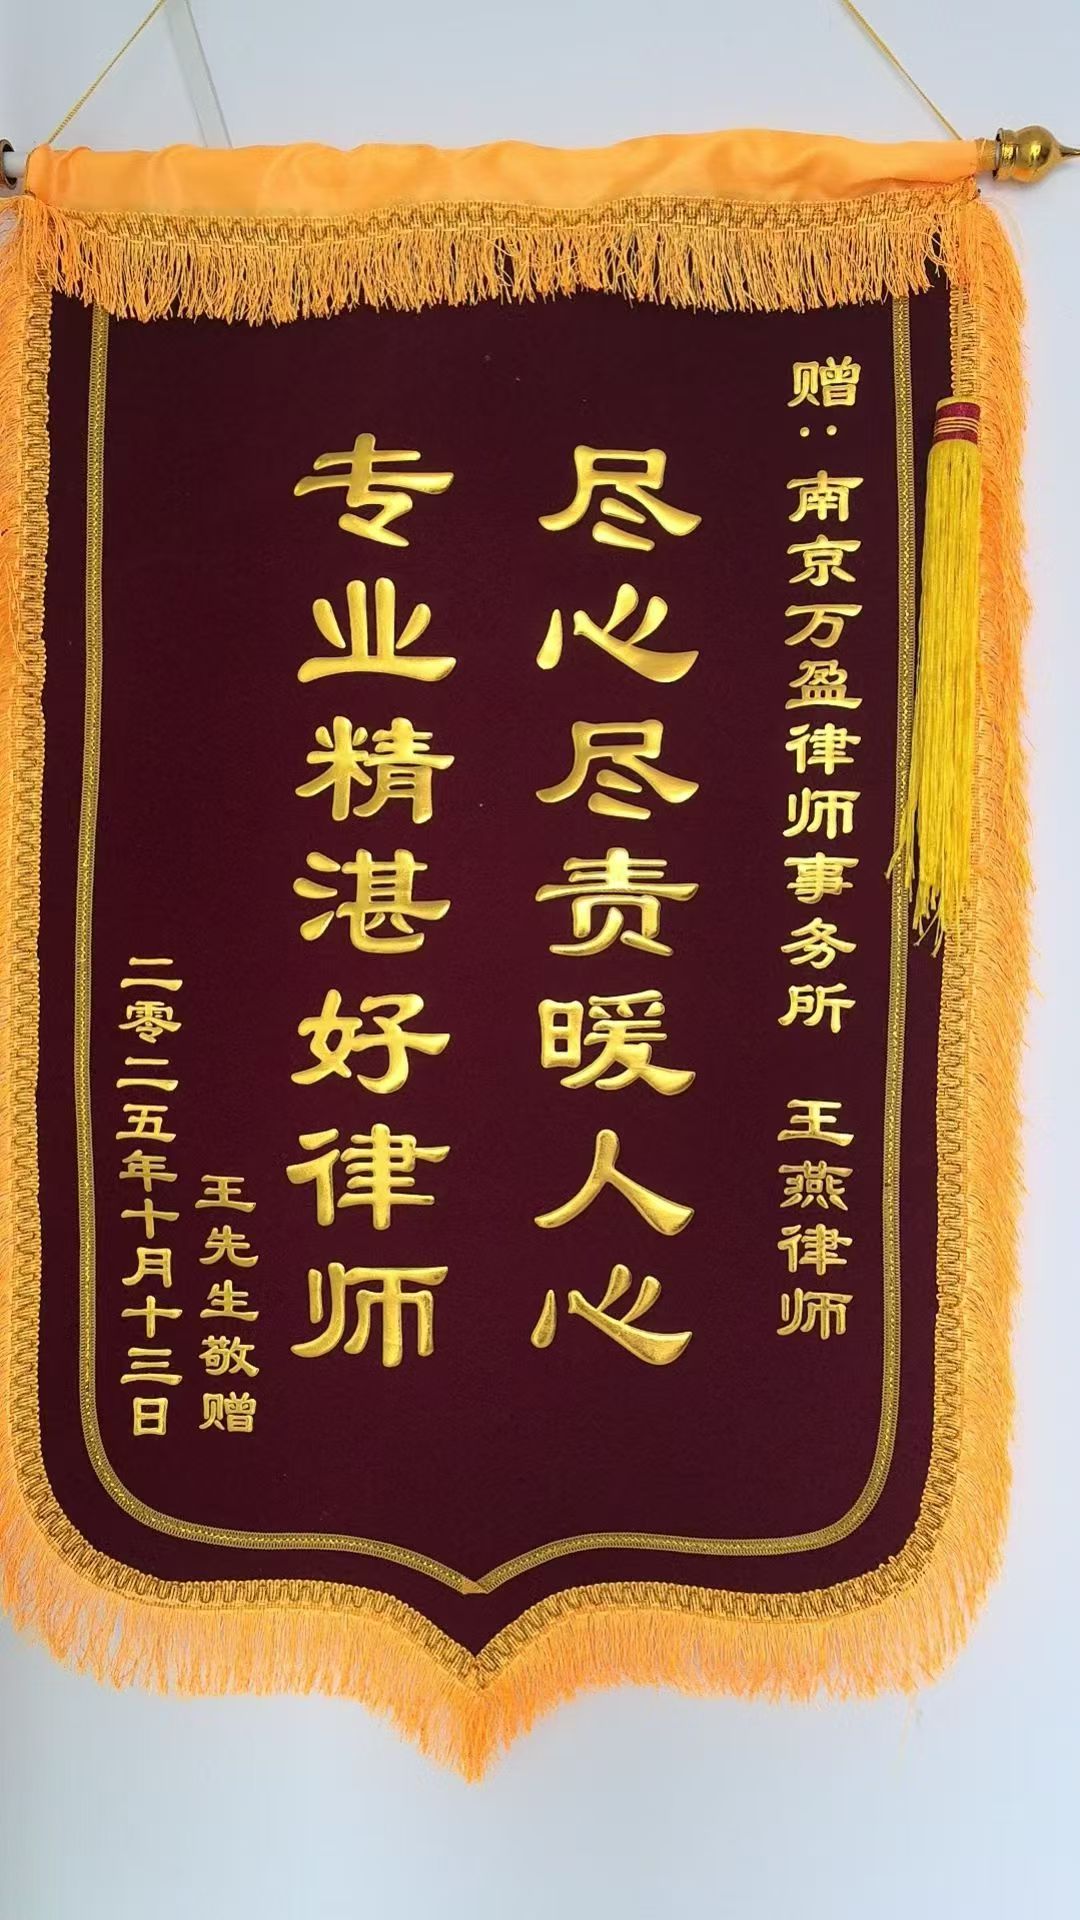 赠：南京万盈律师事务所 王燕律师
尽心尽责暖人心
专业精湛好律师
王先生敬赠
二零二五年十月十三日